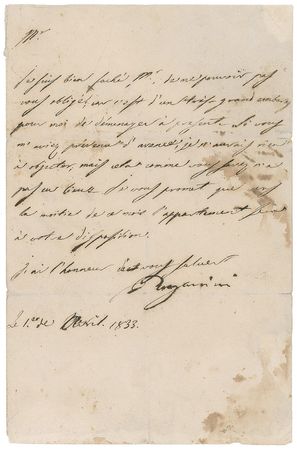 Mr
Je suis bien faché, Mr. de ne pouvoir pas
vous obliger, c'est d'un très grand embarras
pour moi de déménager à présent. Si vous
m'aviez prévenu d'avance, je n'aurais rien
à objecter, mais cela comme vous savez n'a
pas eu lieu. Je vous promet que vers
la moitié de ce mois l'appartement sera
à votre disposition.
J'ai l'honneur de vous saluer
Le 1.er de Avril. 1833.